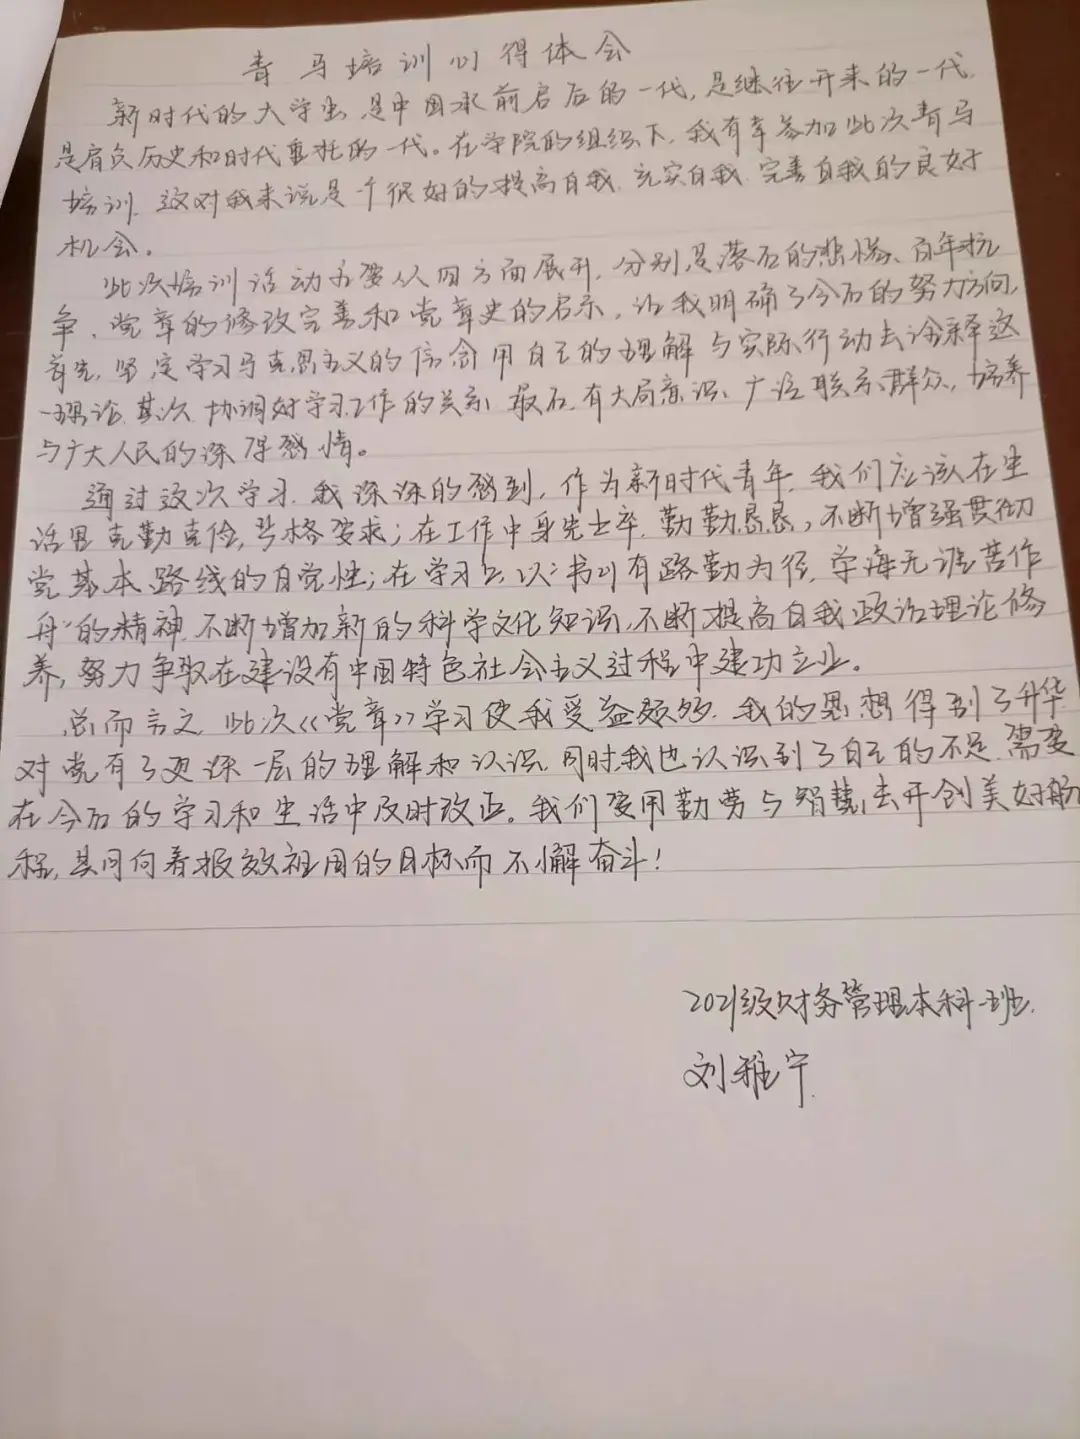 青马培训心得体会
新时代的大学生,是中国承前启后的一代,是继往开来的一代,
是肩负历史和时代重托的一代。在学院的组织下,我有幸参加此次青马
培训,这对我来说是一个很好的提高自我,充实自我,完善自我的良好
机会。
此次培训活动主要从四方面展开,分别是落后的悲惨、百年抗
争、党章的修改完善和党章史的启示,让我明确了今后的努力方向,
首先,坚定学习马克思主义的信念用自己的理解与实际行动去诠释这
一理论,其次,协调好学习工作的关系,最后,有大局意识,广泛联系群众,培养
与广大人民的深厚感情。
通过这次学习,我深深的感到,作为新时代青年,我们应该在生
活里克勤克俭,严格要求;在工作中身先士卒,勤勤恳恳,不断增强贯彻
党基本路线的自觉性;在学习上,以“书山有路勤为径,学海无涯苦作
舟”的精神,不断增加新的科学文化知识,不断提高自我政治理论修
养,努力争取在建设有中国特色社会主义过程中建功立业。
总而言之,此次《党章》学习使我受益颇多,我的思想得到了升华
对党有了更深一层的理解和认识,同时,我也认识到了自己的不足,需要
在今后的学习和生活中及时改正。我们要用勤劳与智慧,去开创美好前
程,共同向着报效祖国的目标而不懈奋斗!
2021级财务管理本科一班.
刘雅宁